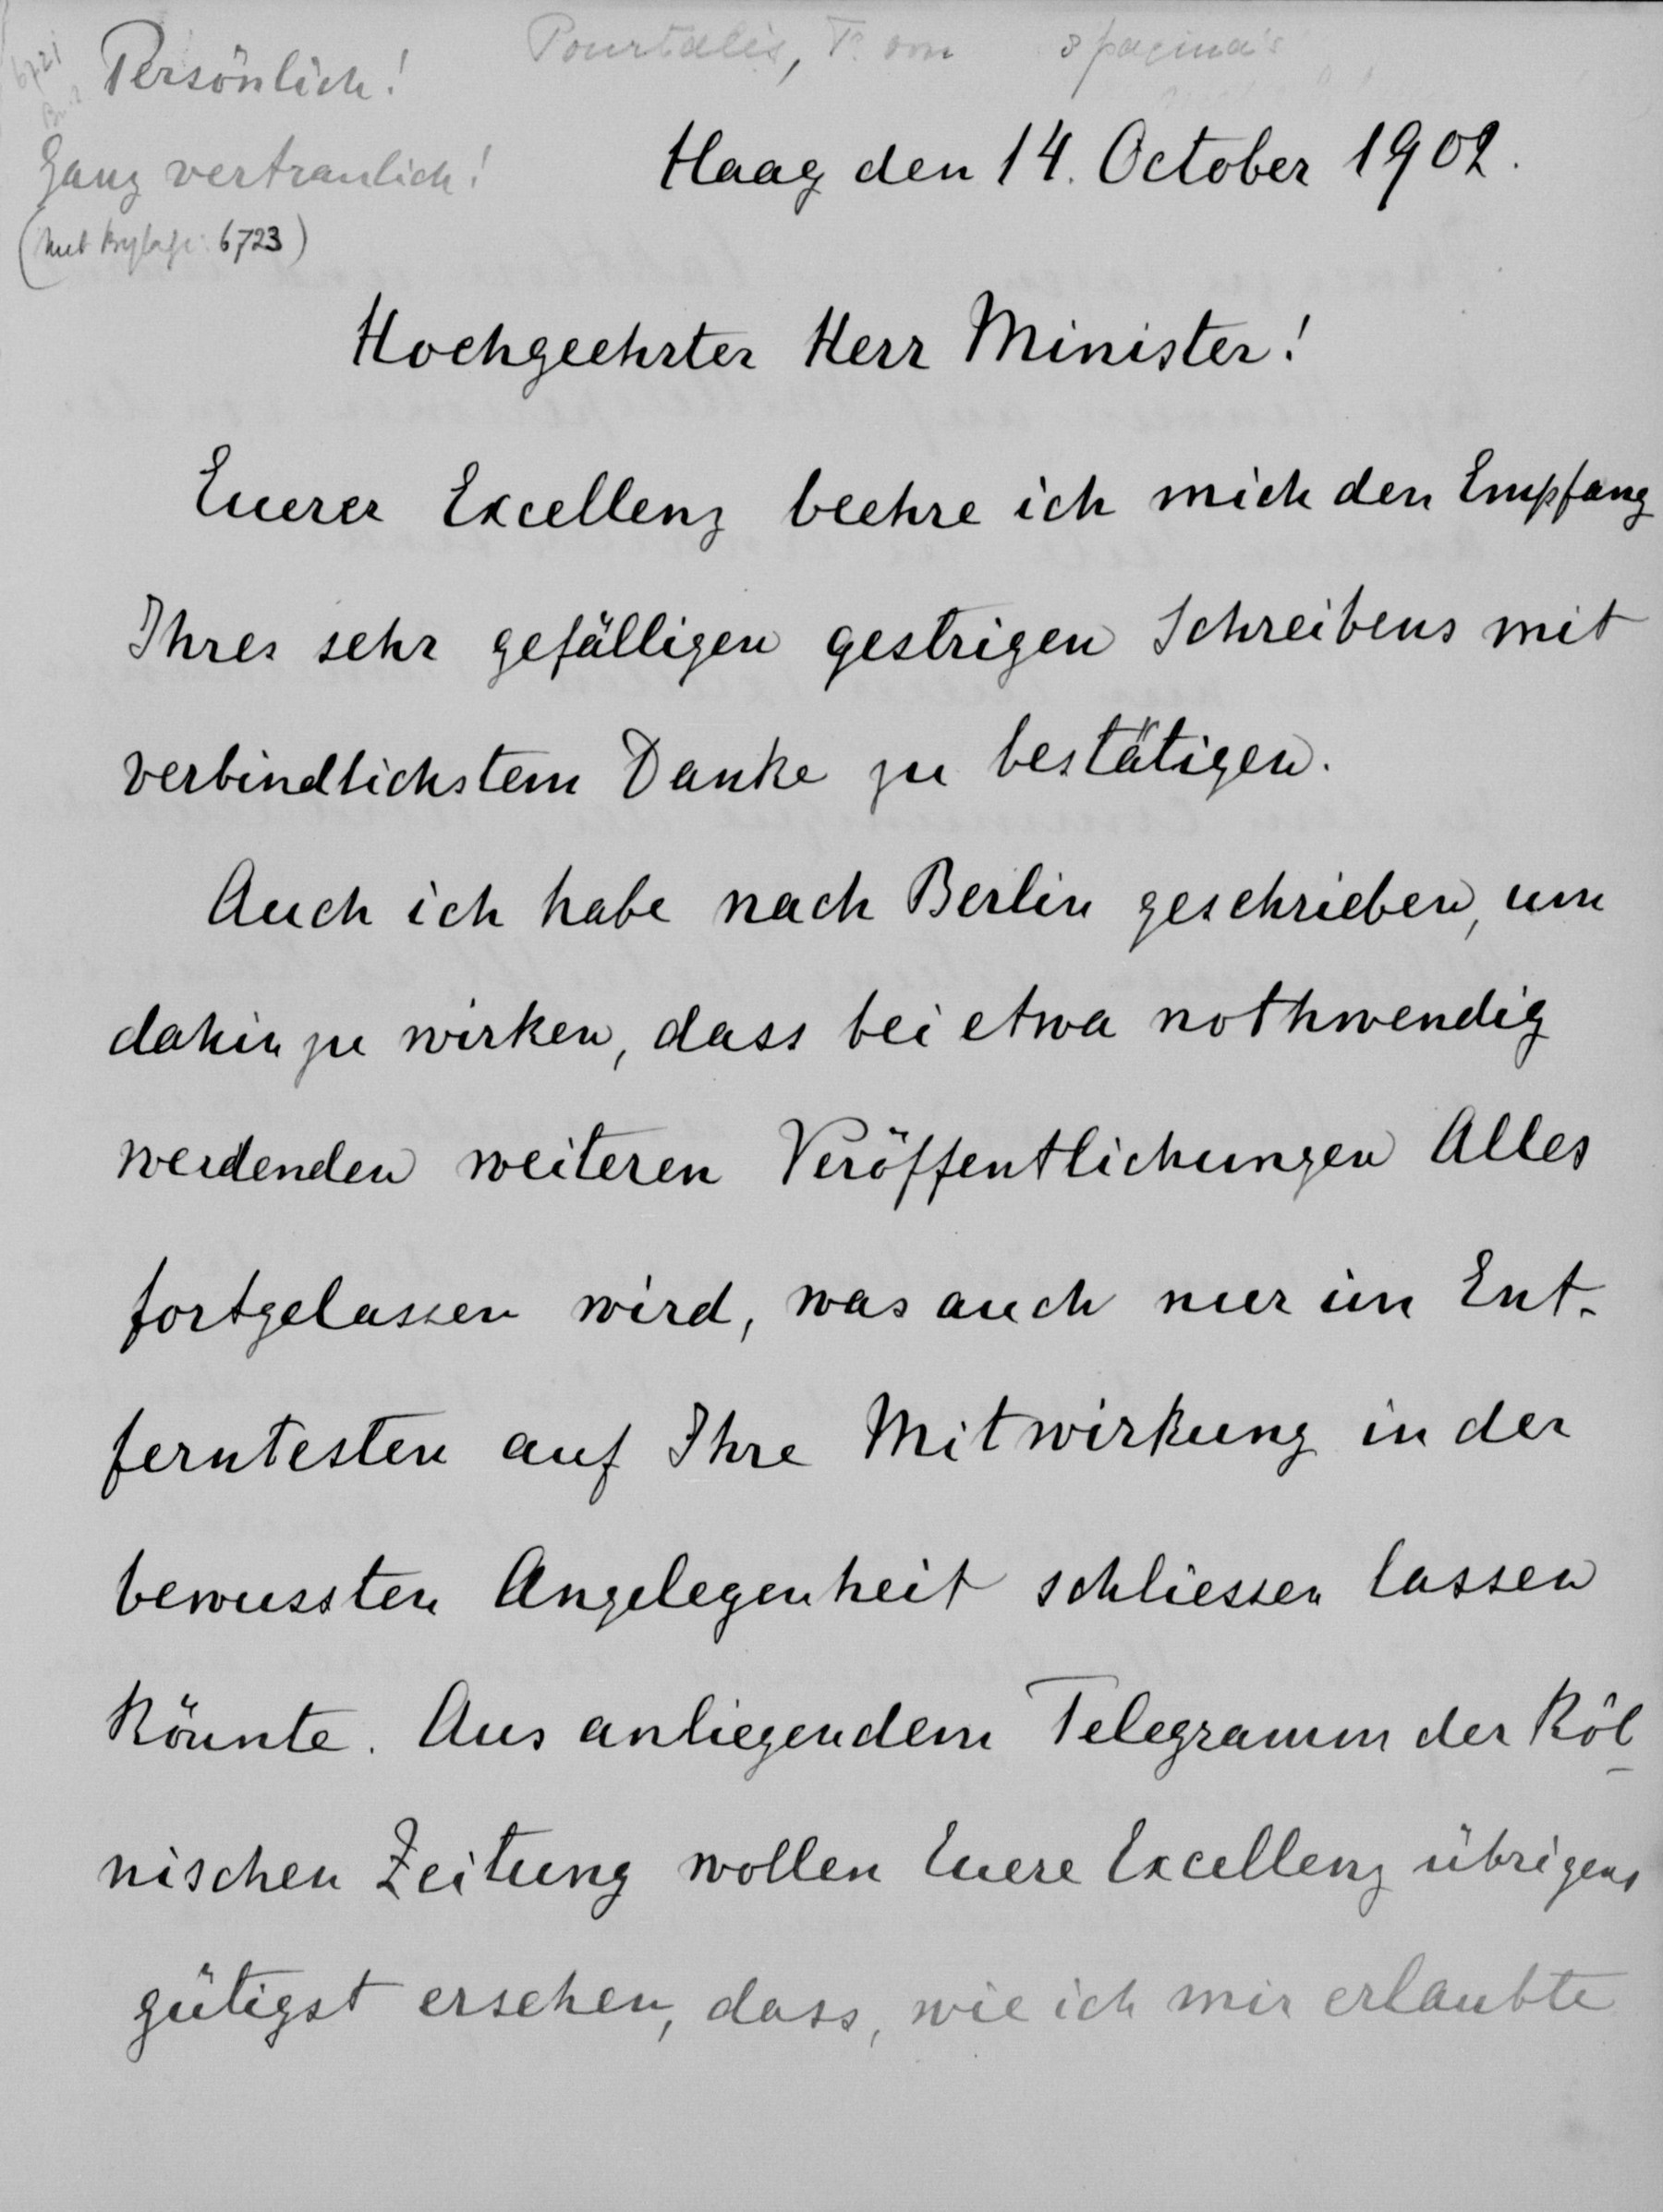 Pourtalès, F. von 3 pagina's
6721
Persönlich!
Ganz vertraulich!
(met Bijlage: 6723)
Haag den 14. October 1902.
Hochgeehrter Herr Minister!
Euerer Excellenz beehre ich mich den Empfang
Ihres sehr gefälligen gestrigen Schreibens mit
verbindlichstem Danke zu bestätigen.
Auch ich habe nach Berlin geschrieben, um
dahin zu wirken, dass bei etwa nothwendig
werdenden weiteren Veröffentlichungen Alles
fortgelassen wird, was auch nur im Ent-
ferntesten auf Ihre Mitwirkung in der
bewussten Angelegenheit schliessen lassen
könnte. Aus anliegendem Telegramm der Köl
nischen Zeitung wollen Euere Excellenz übrigens
gütigst ersehen, dass, wie ich mir erlaubte